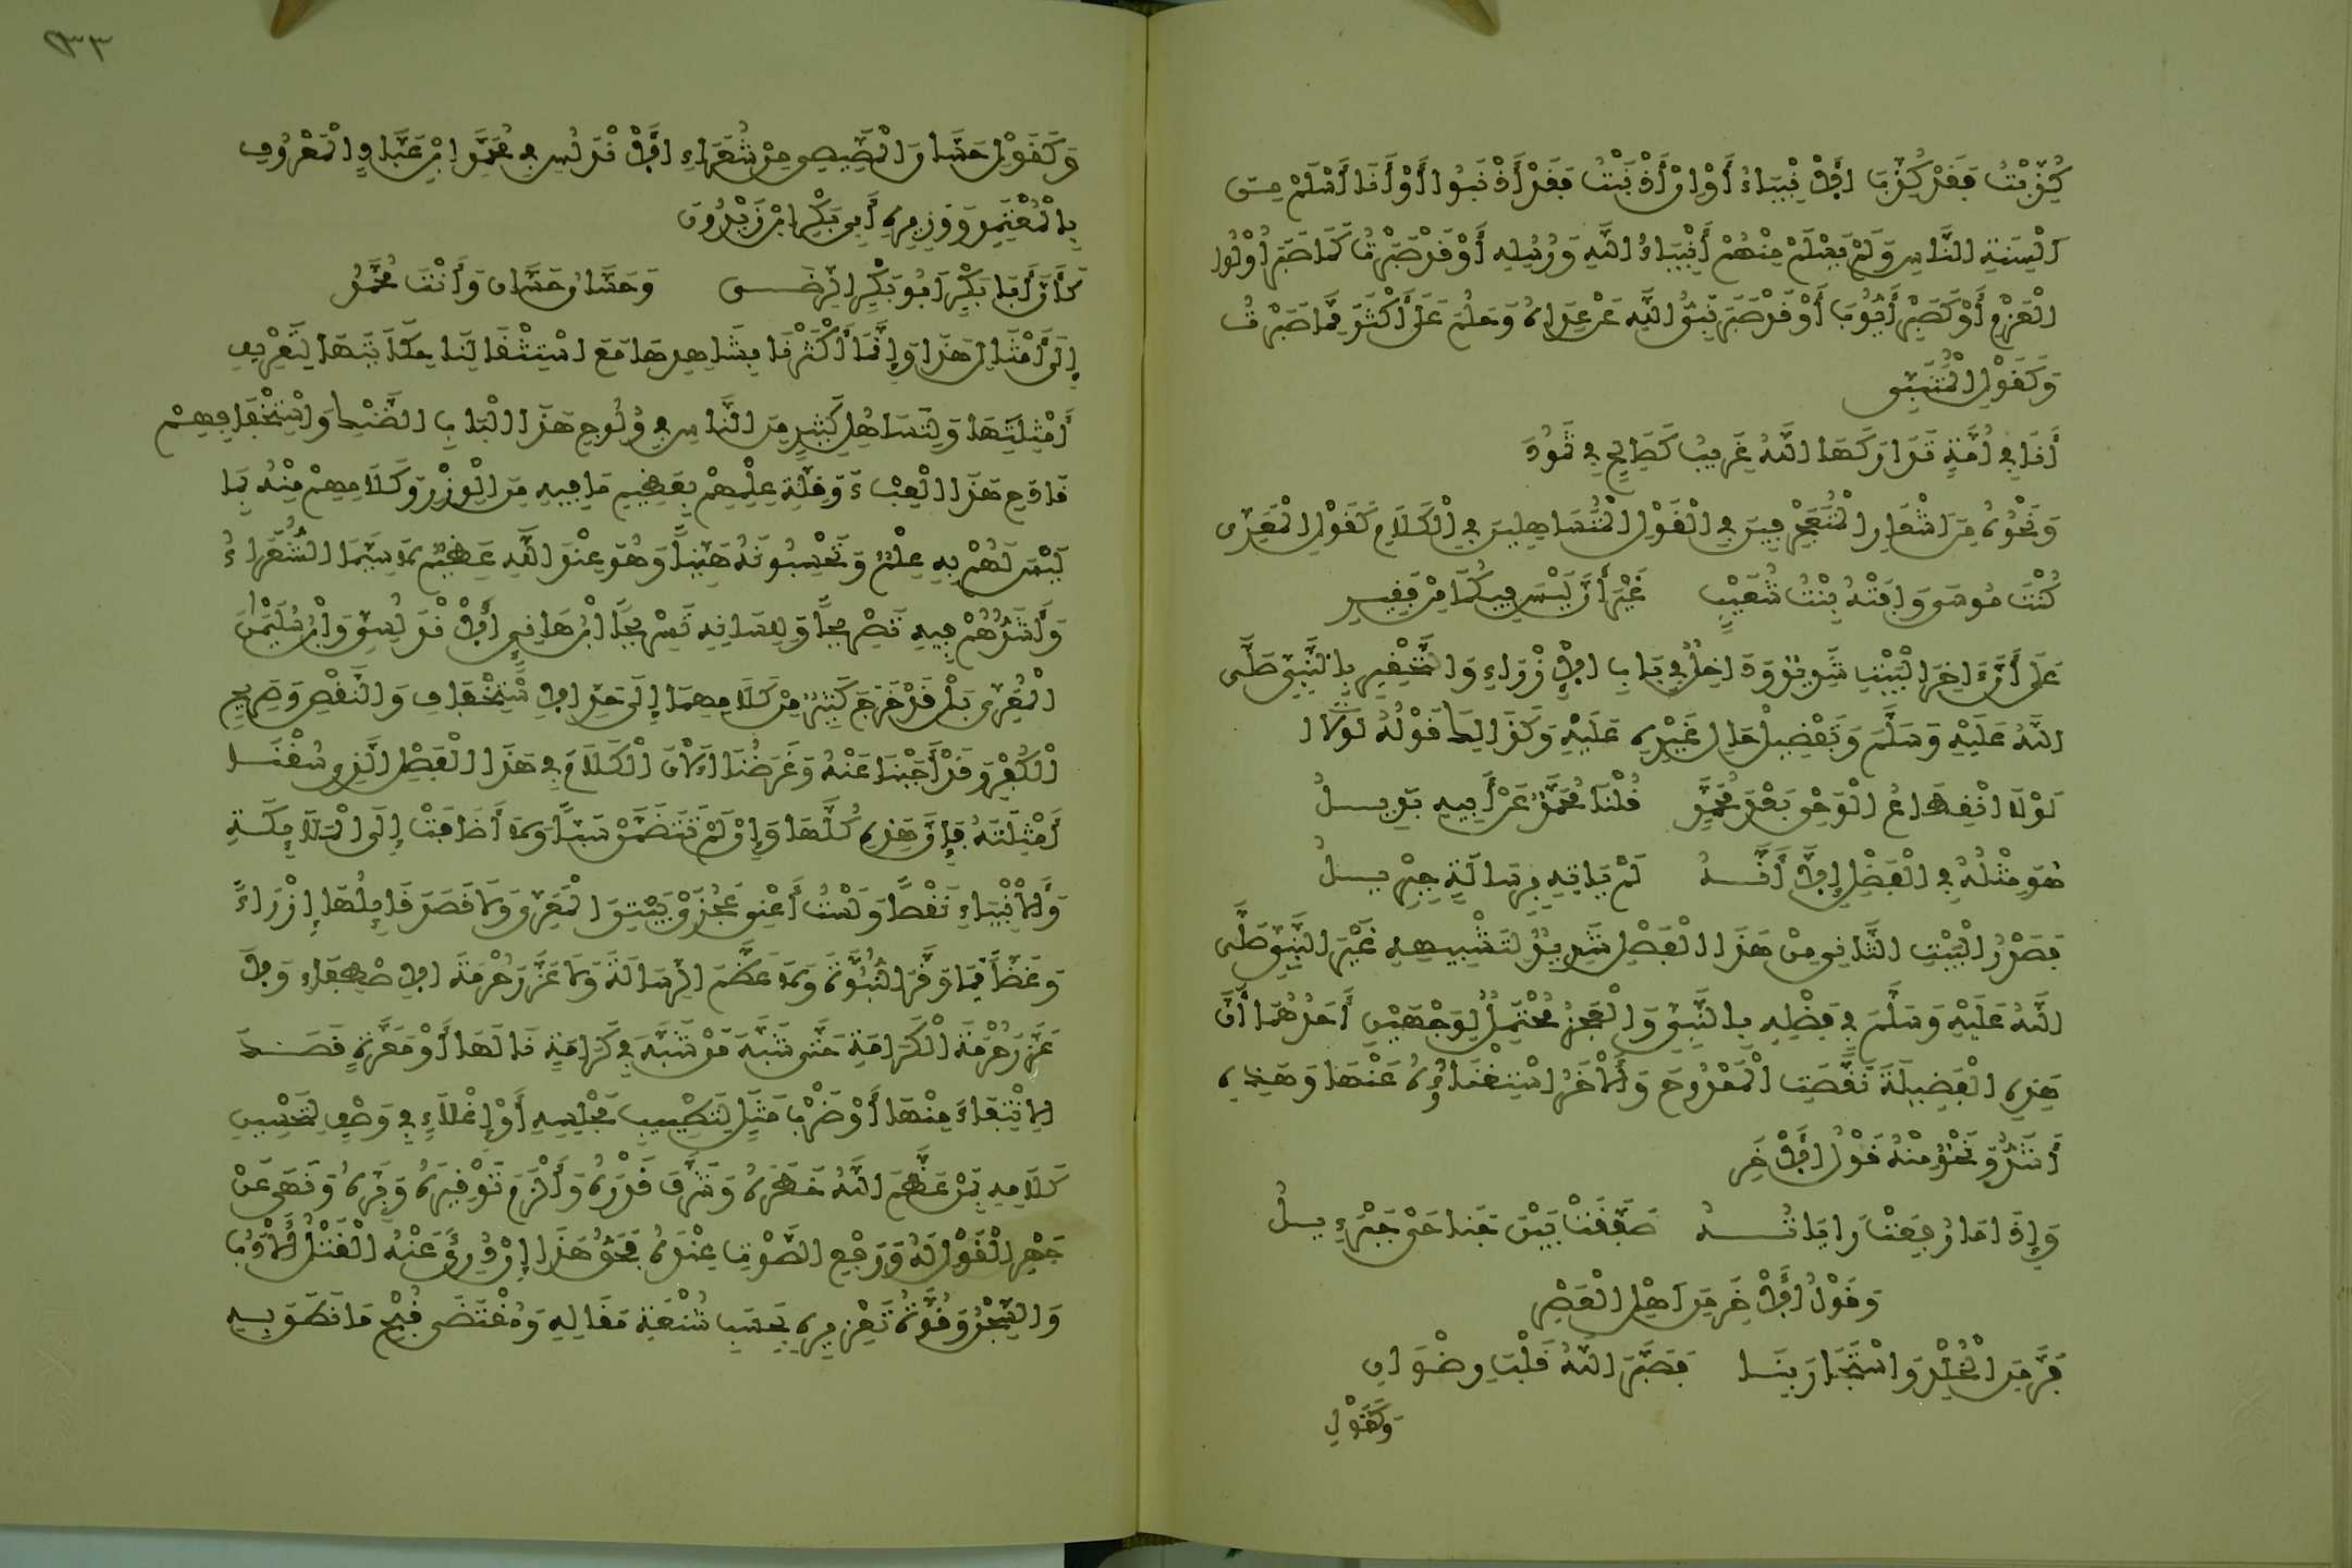 كُذِّبْتُ فَقَدْ كُذِّبَ الْأَنْبِيَاءُ أَوْ إِنْ أَذْنَبْتُ فَقَدْ أَذْنَبُوا أَوْ أَنَا أَسْلَمُ مِنْ
أَلْسِنَةِ النَّاسِ وَلَمْ يَسْلَمْ مِنْهُمْ أَنْبِيَاءُ اللَّهِ وَرُسُلِهِ أَوْ قَدْ صَبَرْتُ كَمَا صَبَرَ أُوْلُوا
الْعَزْمِ أَوْ كَصَبْرِ أَيُّوبَ أَوْ قَدْ صَبَرَ نَبِيُّ اللَّهِ عَنْ عِدَاهُ وَحَلُمَ عَلَى أَكْثَرَ مِمَّا صَبَرْتُ
وَكَقَوْلِ الْمُتَنَبِّي
أَنَا فِي أُمَّةٍ تَدَارَكَهَا اللَّهُ غَرِيبٌ كَصَالِحٍ فِي ثَمُودَ
وَنَحْوُهُ مِنَ اشْعَارِ الْمُتَعَجْرِفِينَ فِي الْقَوْلِ الْمُتَسَاهِلِينَ فِي الْكَلَامِ كَقَوْلِ الْمَعَرِّي
كُنْتَ مُوسَى وَافَتْهُ بِنْتُ شُعَيْبٍ غَيْرَ أَنْ لَيْسَ فِيكُمَا مِنْ فَقِيرِ
عَلَى أَنَّ ءَاخِرَ الْبَيْتِ شَدِيدٌ وَدَاخِلٌ فِي بَابِ الْإِزْرَاءِ وَالتَّحْقِيرِ بِالنَّبِيِّ صَلَّى
اللَّهُ عَلَيْهِ وَسَلَّمَ وَتَفْضِيلِ حَالِ غَيْرِهِ عَلَيْهِ وَكَذَالِكَ قَوْلُهُ لَوْلَا
لَوْلَا انْقِطَاعُ الْوَحْيِ بَعْدَ مُحَمَّدٍ قُلْنَا مُحَمَّدٌ عَنْ أَبِيهِ بَدِيلُ
هُوَ مِثْلُهُ فِي الْفَضْلِ إِلَّا أَنَّهُ لَمْ يَاتِهِ بِرِسَالَةٍ جِبْرِيلُ
فَصَدْرُ الْبَيْتِ الثَّانِي مِنْ هَذَا الْفَصْلِ شَدِيدٌ لِتَشْبِيهِهِ غَيْرَ النَّبِيِّ صَلَّى
اللَّهُ عَلَيْهِ وَسَلَّمَ فِي فَضْلِهِ بِالنَّبِيِّ وَالْعَجُزُ مُحْتَمِلٌ لِوَجْهَيْنِ أَحَدُهُمَا أَنَّ
هَذِهِ الْفَضِيلَةَ نَقَّصَتِ الْمَمْدُوحَ وَالْأَخَرُ اسْتِغْنَاؤُهُ عَنْهَا وَهَذِهِ
أَشَدُّ وَنَحْوٌ مِنْهُ قَوْلُ الْأَخَرِ
وَإِذَا مَا رُفِعَتْ رَايَاتُهُ صَفَّقَتْ بَيْنَ جَنَاحَيْ جَبْرَءِيلُ
وَقَوْلُ الْأَخَرِ مِنَ اهْلِ الْعَصْرِ
فَرَّ مِنَ الْخُلْدِ وَاسْتَجَارَ بِنَا فَصَبَّرَ اللَّهُ قَلْبَ رِضْوَانِ
وَكَقَوْلِ
٩٣٣
وَكَقَوْلِ حَسَّانَ الْمِصِّيصِي مِنْ شُعَرَاءِ الْأَنْدَلُسِ فِي مُحَمَّدِ ابْنِ عَبَّادٍ الْمَعْرُوفِ
بِالْمُعْتَمِدِ وَوَزِيرِهِ أَبِي بَكْرِ ابْنِ زَيْدُونَ
كَأَنَّ أَبَا بَكْرٍ أَبُو بَكْرِ الرِّضَى وَحَسَّانُ حَسَّانٌ وَأَنْتَ مُحَمَّدُ
إِلَى أَمْثَالِ هَذَا وَإِنَّمَا أَكْثَرْنَا بِشَاهِدِهَا مَعَ اسْتِثْقَالِنَا حِكَايَتَهَا لِتَعْرِيفِ
أَمْثِلَتِهَا وَلِتَسَاهُلِ كَثِيرٍ مِنَ النَّاسِ فِي وُلُوجِ هَذَا الْبَابِ الضَّنْكِ وَاسْتِخْفَافِهِمْ
فَادِحَ هَذَا الْعِبْءِ وَقِلَّةِ عِلْمِهِمْ بِعَظِيمِ مَا فِيهِ مِنَ الْوِزْرِ وَكَلَامِهِمْ مِنْهُ بِمَا
لَيْسَ لَهُمْ بِهِ عِلْمٌ وَتَحْسِبُونَهُ هَيِّناً وَهُوَ عِنْدَ اللَّهِ عَظِيمٌ لَا سِيَّمَا الشُّعَرَاءُ
وَأَشَدُّهُمْ فِيهِ تَصْرِيحاً وَلِلِسَانِهِ تَسْرِيحاً ابْنُ هَانِئٍ الْأَنْدَلُسِيُّ وَابْنُ سُلَيْمَانَ
الْمَعَرِّي بَلْ قَدْ خَرَجَ كَثِيرٌ مِنْ كَلَامِهِمَا إِلَى حَدِّ الْإِسْتِخْفَافِ وَالنَّقْصِ وَصَرِيحِ
الْكُفْرِ وَقَدْ أَجَبْنَا عَنْهُ وَغَرَضُنَا الْآنَ الْكَلَامُ فِي هَذَا الْفَصْلِ الَّذِي سُقْنَا
أَمْثِلَتَهُ فَإِنَّ هَذِهِ كُلَّهَا وَإِنْ لَمْ تَتَضَمَّنْ سَبّاً وَلَا أَضَافَتْ إِلَى الْمَلَائِكَةِ
وَالْأَنْبِيَاءِ نَقْصاً وَلَسْتُ أَعْنِي عَجُزَيْ بَيْتِيِ الْمَعَرِّي وَلَا قَصَدَ قَائِلُهَا إِزْرَاءً
وَغَضّاً فَمَا وَقَّرَ النُّبُوَّةَ وَلَا عَظَّمَ الرِّسَالَةَ وَلَا عَزَّرَ حُرْمَةَ الْاِصْطِفَاءِ وَلَا
عَزَّزَ حُرْمَةَ الْكَرَامَةِ حَتَّى شَبَّهَ مَنْ شَبَّهَ فِي كَرَامَةٍ نَالَهَا أَوْ مَعَرَّةٍ قَصَدَ
الِانْتِفَاءَ مِنْهَا أَوْ ضَرْبِ مَثَلٍ لِتَطْيِيبِ مَجْلِسِهِ أَوْ إِغْلَاءٍ فِي وَصْفٍ لِتَحْسِينِ
كَلَامِهِ بِمَنْ عَظَّمَ اللَّهُ خَطَرَهُ وَشَرَّفَ قَدْرَهُ وَأَلْزَمَ تَوْقِيرَهُ وَبِرَّهُ وَنَهَى عَنْ
جَهْرِ الْقَوْلِ لَهُ وَرَفْعِ الصَّوْتِ عِنْدَهُ فَحَقُّ هَذَا إِنْ دُرِئَ عَنْهُ الْقَتْلُ الْأَدَبُ
وَالسِّجْنُ وَقُوَّةُ تَعْزِيرِهِ بِحَسَبِ شُنْعَةِ مَقَالِهِ وَمُقْتَضَى قُبْحِ مَا نَطَقَ بِهِ